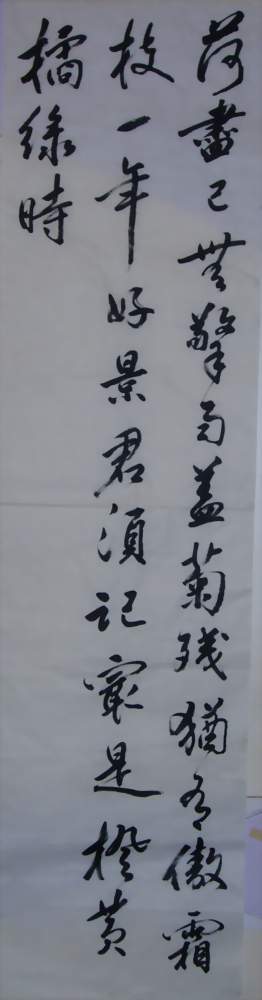 荷盡已無擎雨蓋菊殘猶有傲霜
枝一年好景君須記最是橙黃
橘綠時